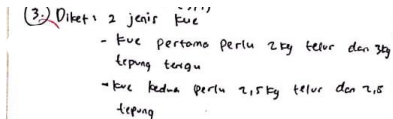 (3.) Diket : 2 jenis kue
- kue pertama perlu 2 kg telur dan 3kg
tepung terigu
- kue kedua perlu 2,5 kg telur dan 2,5
tepung